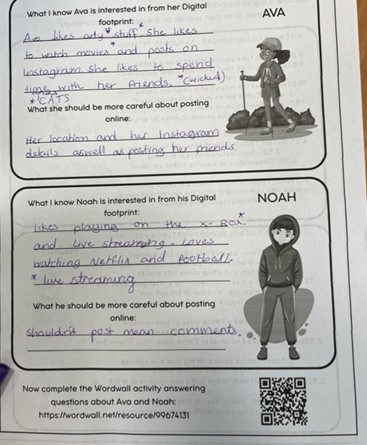 What I know Ava is interested in from her Digital
footprint: *
AVA
Ava likes arty stuff. She likes
to watch movies * and posts on
Instagram. She likes to spend
time with her friends. *(wicked)
* CATS
What she should be more careful about posting
online:
Her location and her Instagram
details aswell as posting her friends.
What I know Noah is interested in from his Digital
footprint:
NOAH
likes playing on the x-Box *
and live streaming. Loves
watching Netflix and football.
* live streaming
What he should be more careful about posting
online:
Shouldn't post mean comments.
Now complete the Wordwall activity answering
questions about Ava and Noah:
https://wordwall.net/resource/99674131